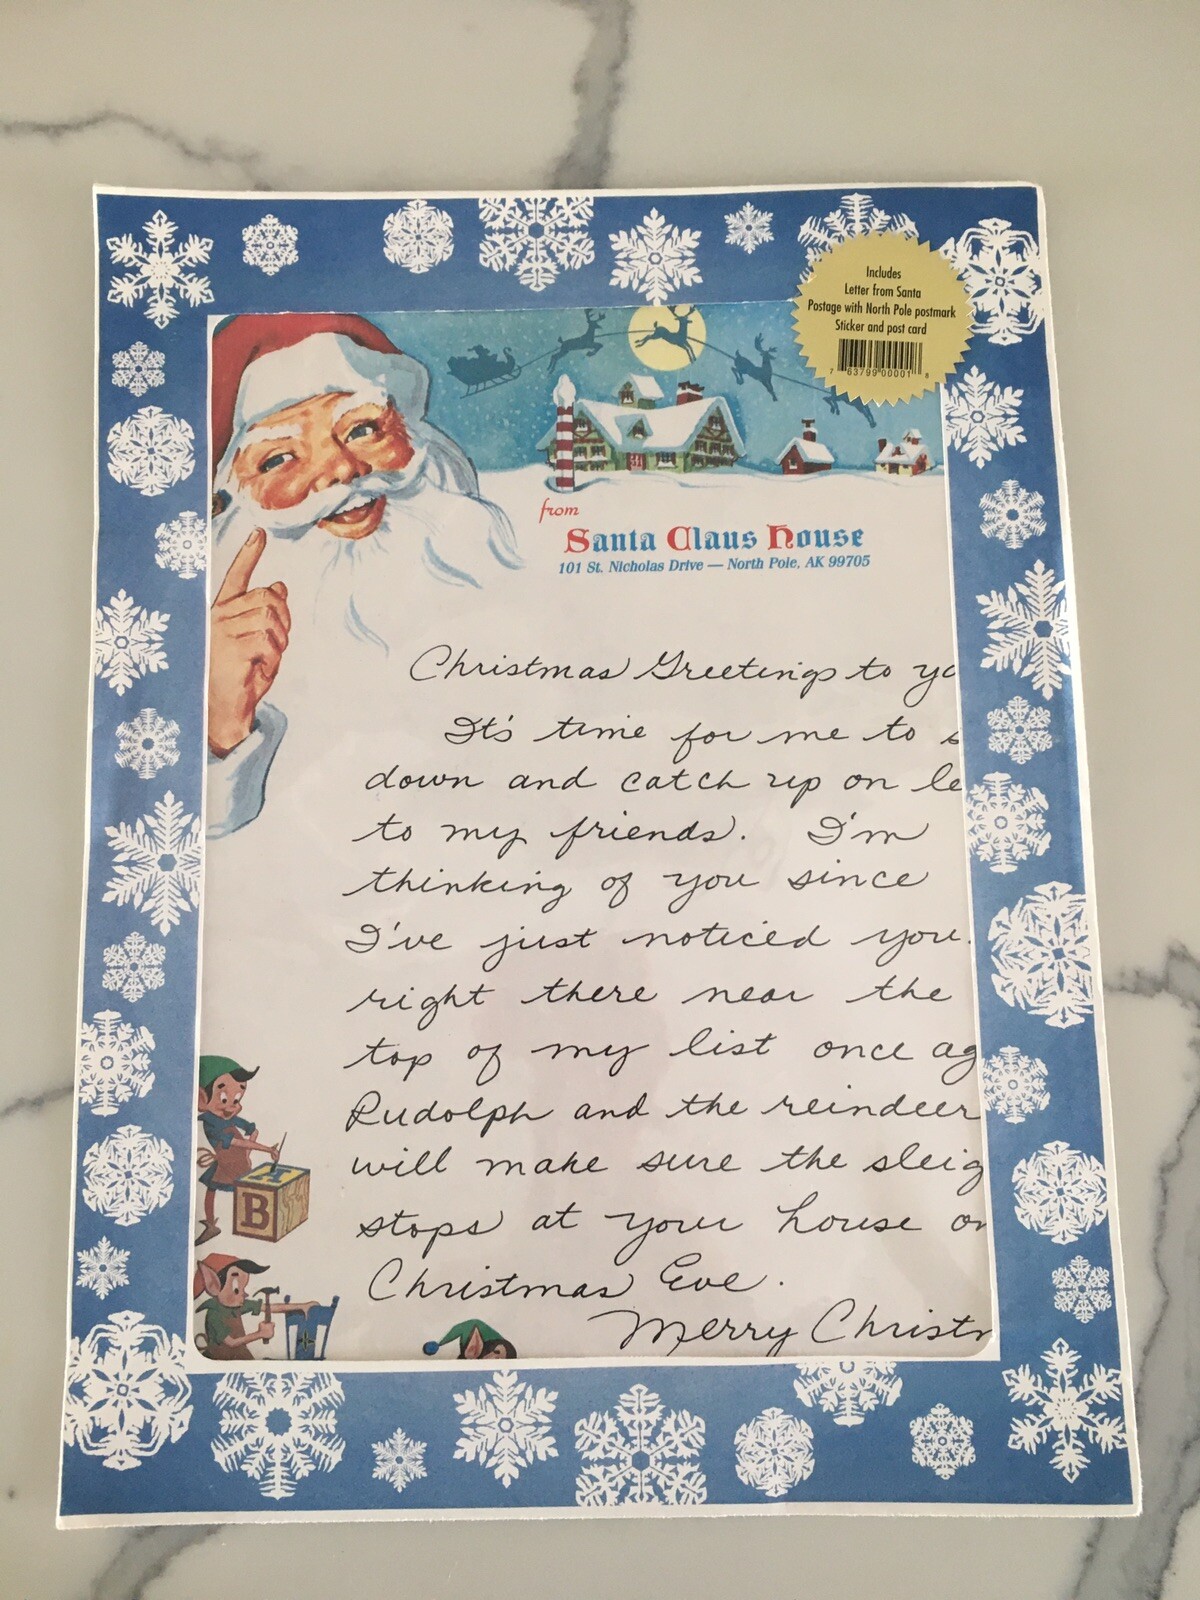 Includes
Letter from Santa
Postage with North Pole postmark
Sticker and post card
7 63799 00001 8
from
Santa Claus House
101 St. Nicholas Drive — North Pole, AK 99705
Christmas Greetings to yo
It's time for me to s
down and catch up on le
to my friends. I'm
thinking of you since
I've just noticed you
right there near the
top of my list once ag
Rudolph and the reindeer
will make sure the sleig
stops at your house on
Christmas Eve.
Merry Christm
B